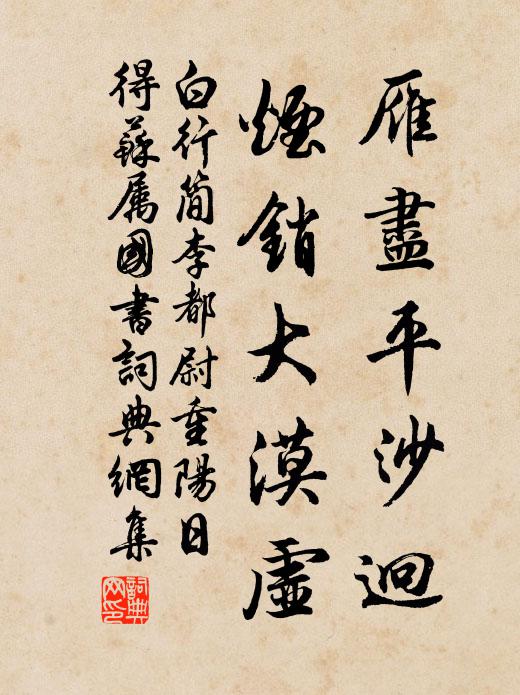 雁盡平沙迥
煙銷大漠虛
白行简李都尉重陽日
得蘇属國書詞典網集
詞典网印